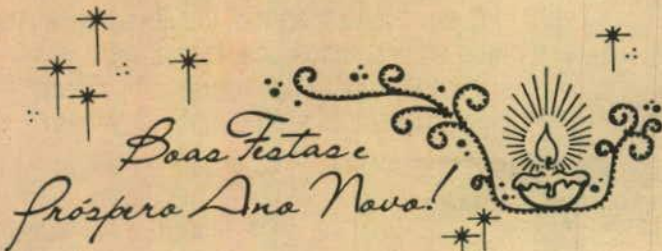 Boas Festas e
Próspero Ano Novo!